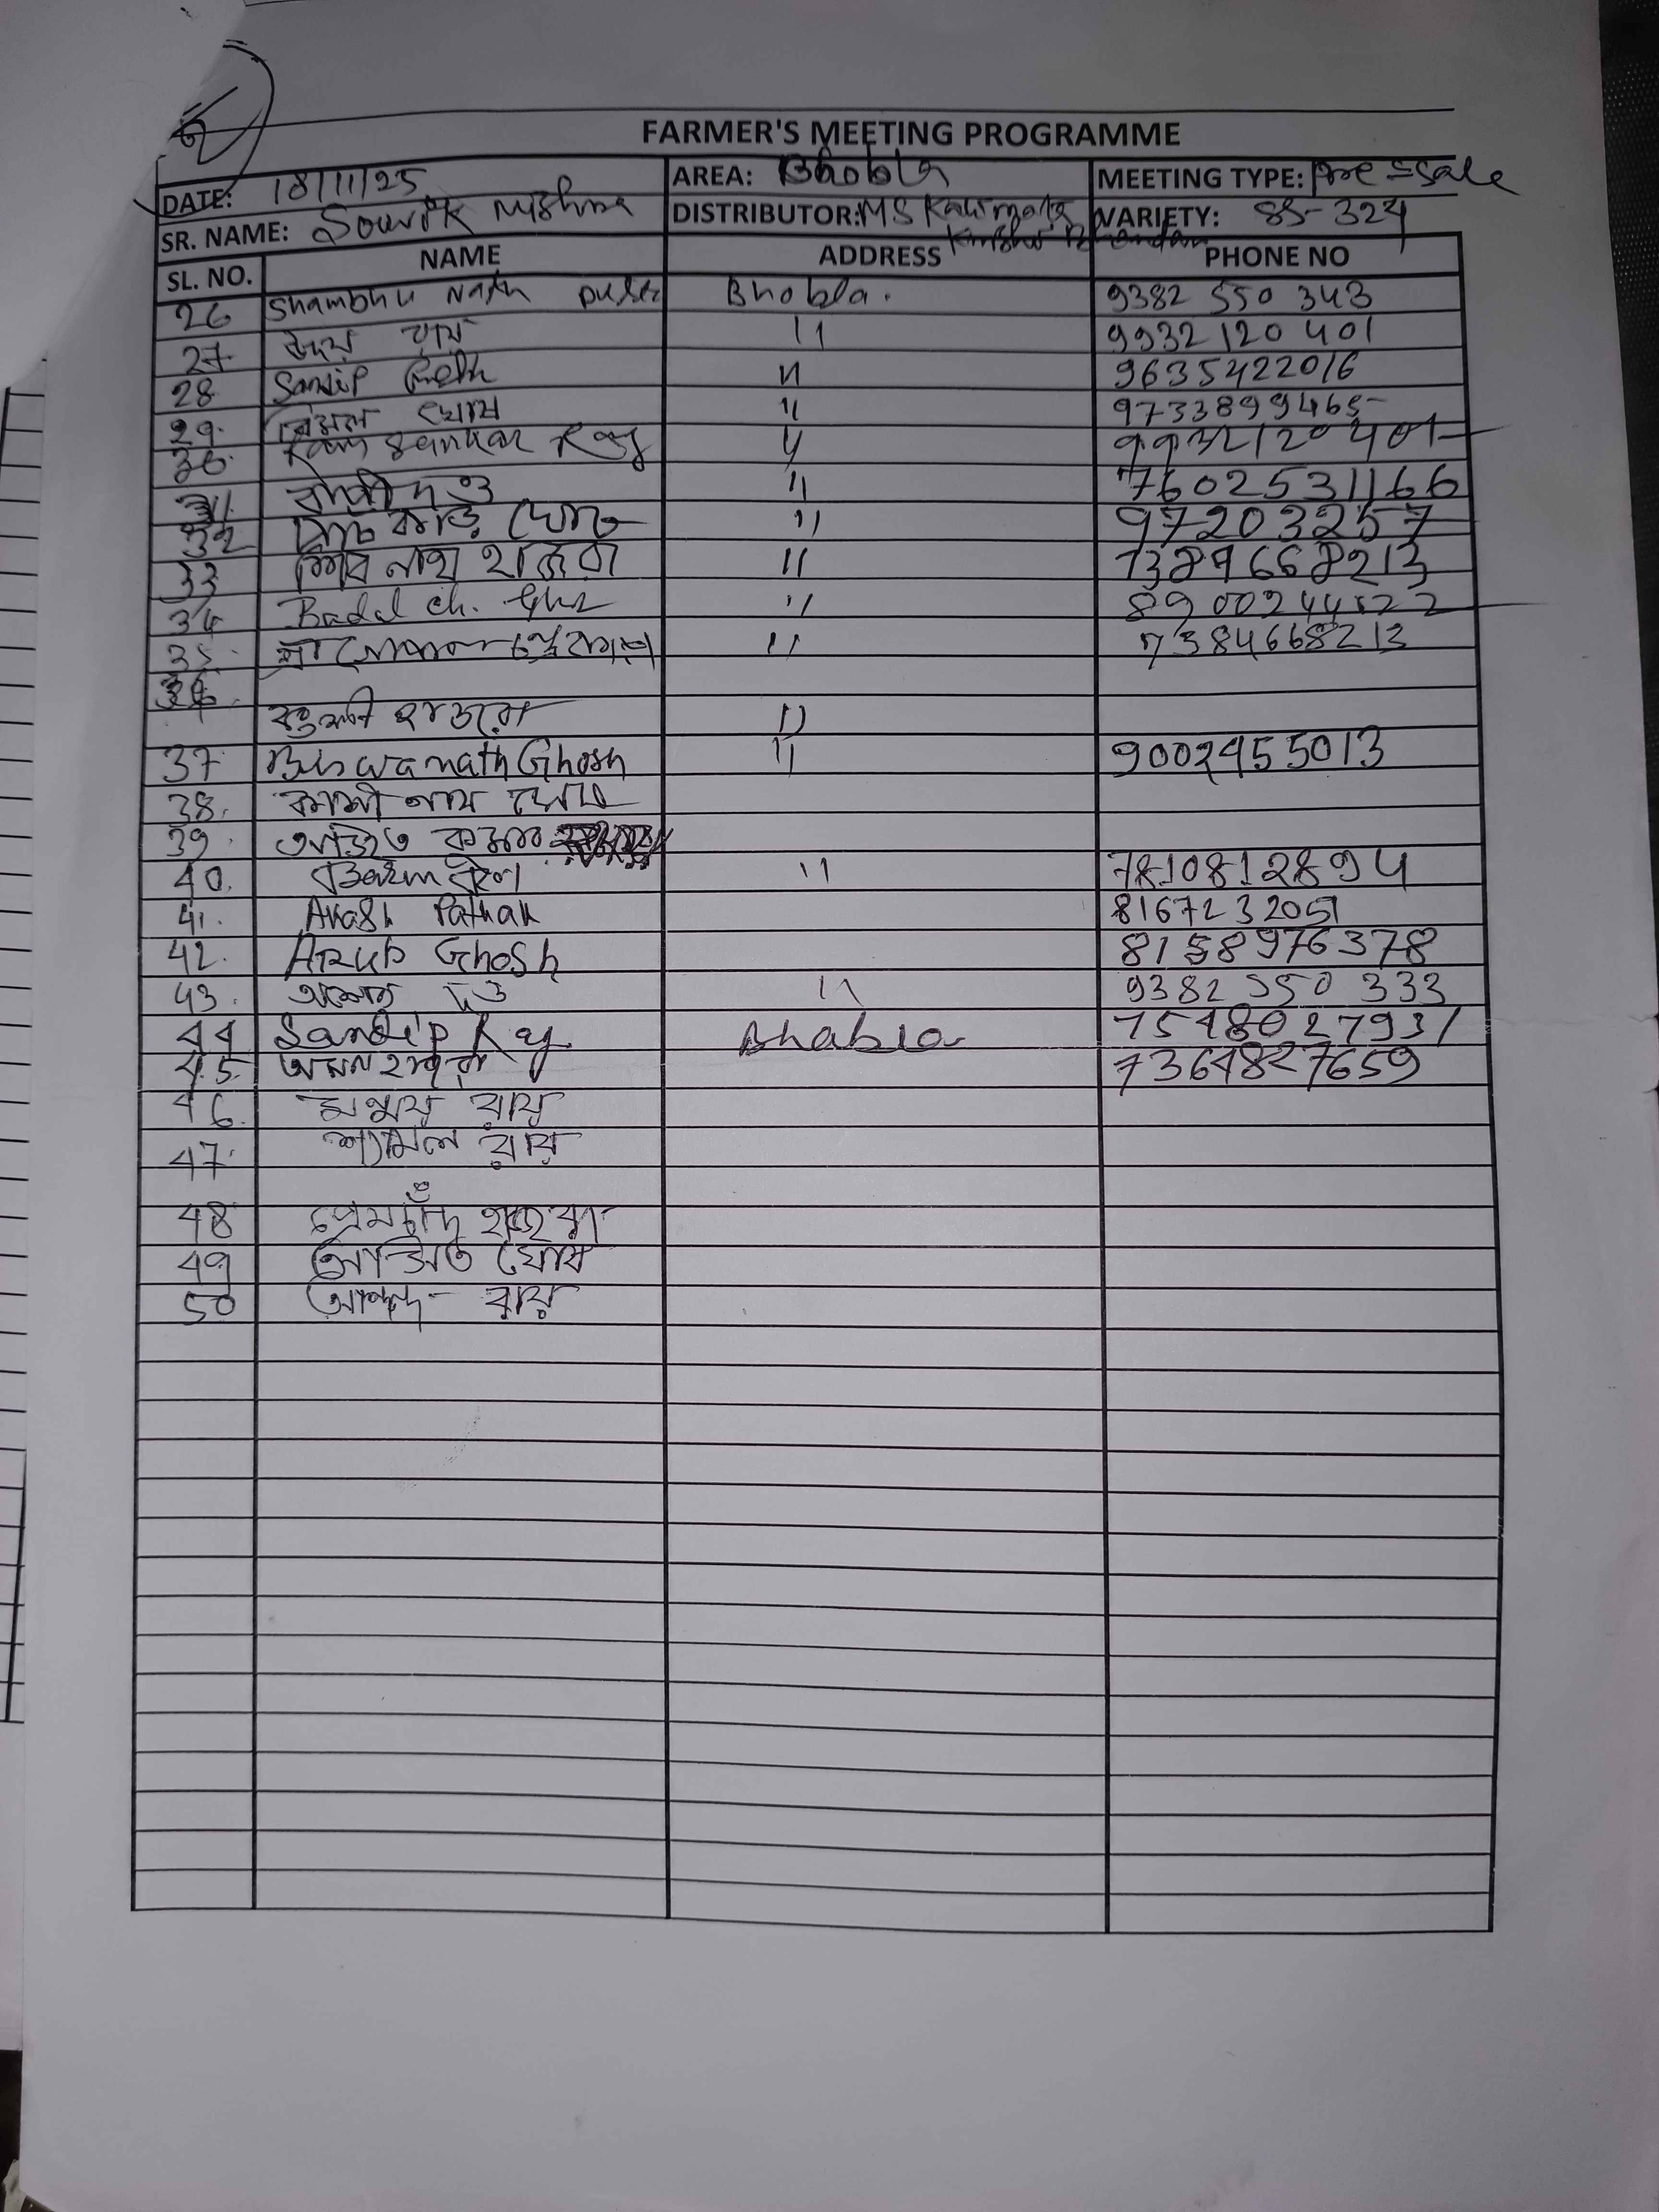 FARMER'S MEETING PROGRAMME
DATE: 18/11/25 AREA: Bhobla MEETING TYPE: Pre=Sale
SR. NAME: Souvik Mishra DISTRIBUTOR: MS Kalimata Krishi Bhandar VARIETY: SS-324
SL. NO. NAME ADDRESS PHONE NO
26 Shambhu Nath Bhobla. 9382 550 343
27. উদয় রায় " 9932 120 401
28. Sandip " 9635422016
29. বিমল ঘোষ " 9733899465
30. Ram Sankar Ray " 9932120401
31 দত্ত " 7602531166
32 পাঁচকড়ি ঘোষ " 97203257
33 শিব নাথ হাজরা " 7384668213
34 Badal ch. " 8900244522
35. শ্রী গোপাল " 7384668213
36
হাজরা "
37. Biswanath Ghosh " 9002455013
38. কাশী নাথ ঘোষ
39. অজিত কুমার
40. " 7810812894
41. Akash Pathak 8167232051
42. Arup Ghosh 8158976378
43. অশোক দত্ত " 9382 550 333
44 Sandip Ray Bhabla 7548027931
45. অমল হাজরা 7364827659
46. মৃন্ময় রায়
47. শ্যামল রায়
48 প্রেমচাঁদ হাজরা
49 অসিত ঘোষ
50 আনন্দ রায়